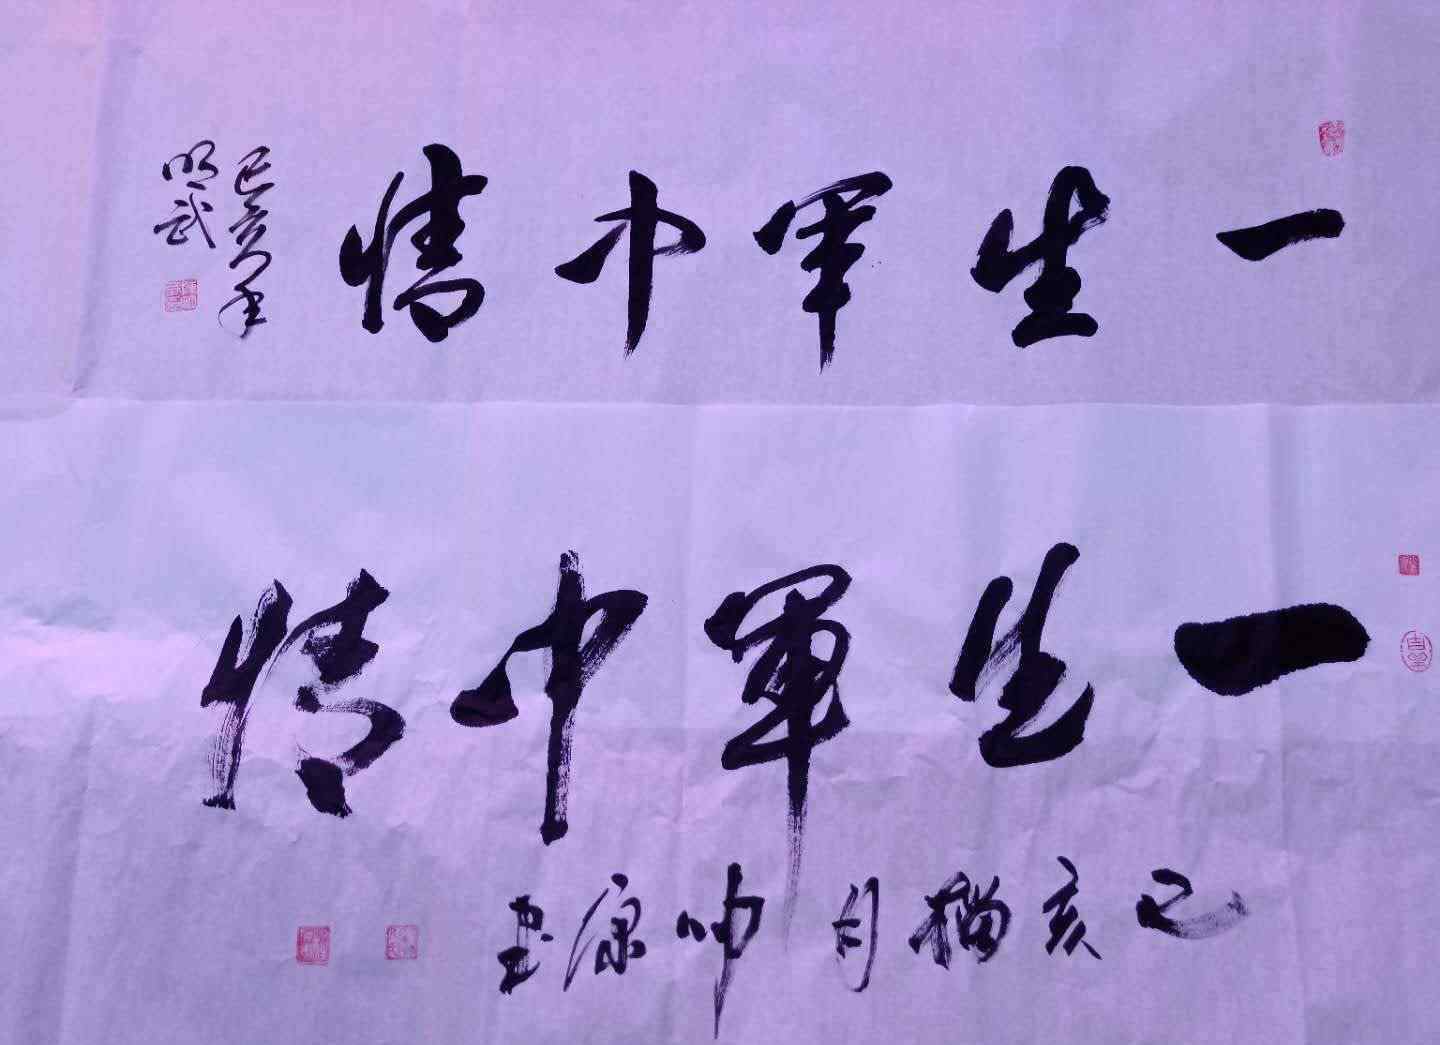 一生軍中情
己亥年
明武
一生軍中情
己亥猫月 康書